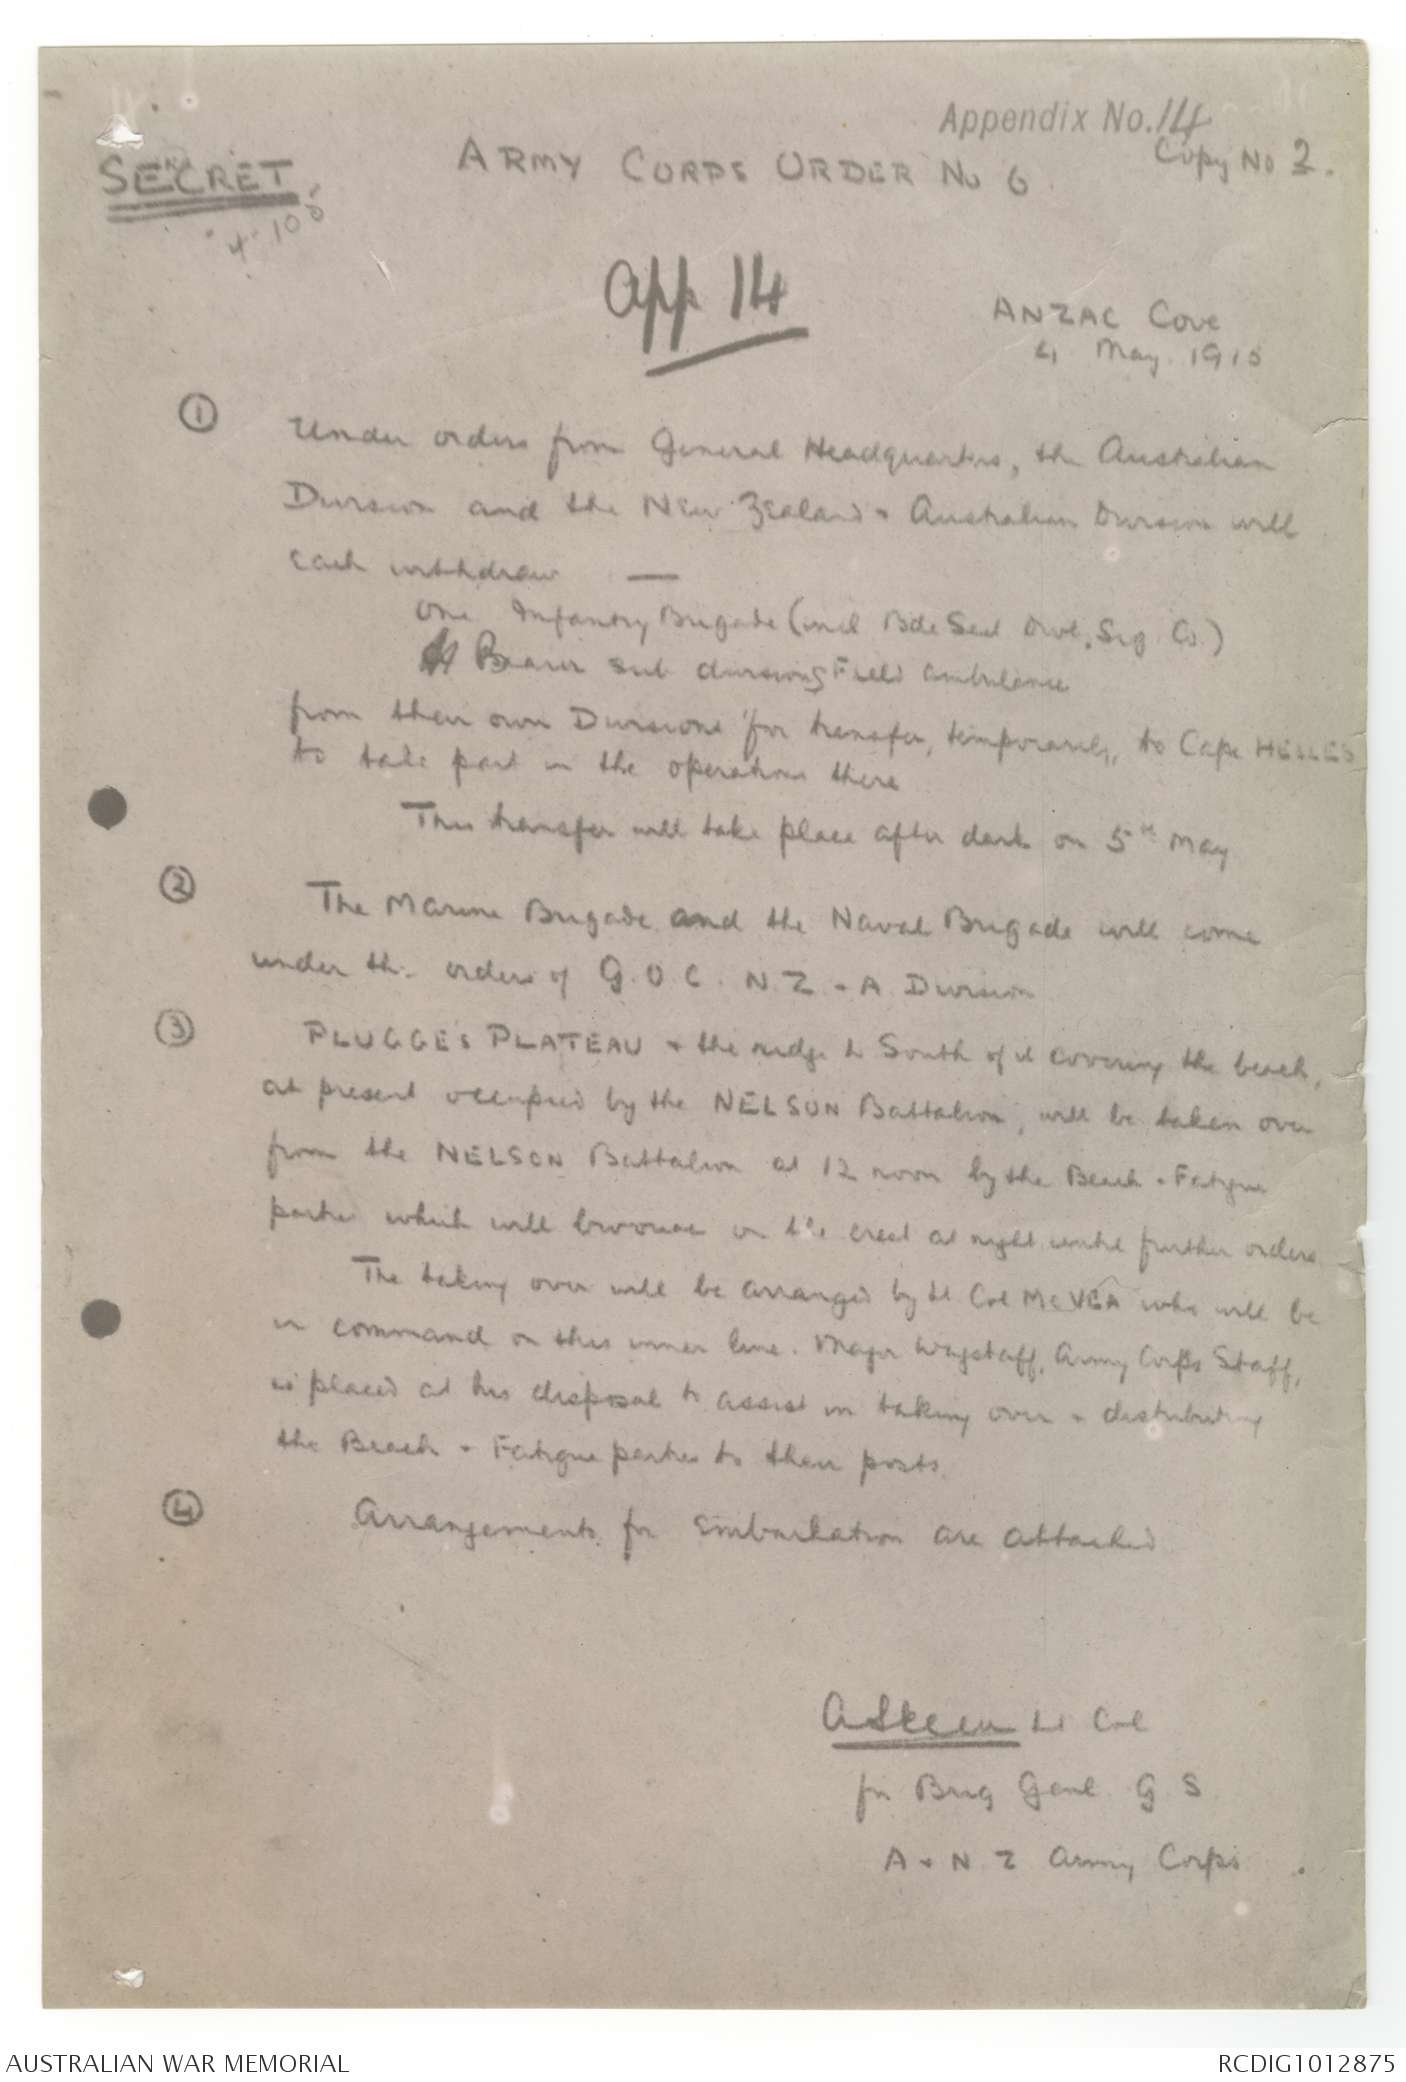 Appendix No. 14
Copy No 2.
SECRET
ARMY CORPS ORDER No 6
App 14
ANZAC Cove
4 May 1915
① Under orders from General Headquarters, the Australian
Division and the New Zealand & Australian Division will
each withdraw —
One Infantry Brigade (incl Bde Sect Divl. Sig Co.)
Bearer sub divisions Field Ambulance
from their own Divisions for transfer, temporarily, to Cape HELLES
to take part in the operations there
This transfer will take place after dark on 5th May
② The Marine Brigade and the Naval Brigade will come
under the orders of G.O.C. N.Z. & A Division
③ PLUGGE'S PLATEAU & the ridge to South of it covering the beach,
at present occupied by the NELSON Battalion, will be taken over
from the NELSON Battalion at 12 noon by the Beach & Fatigue
parties which will bivouac on the crest at night until further orders
The taking over will be arranged by Lt Col McVEA who will be
in command on this inner line. Major Wagstaff, Army Corps Staff,
is placed at his disposal to assist in taking over & distributing
the Beach & Fatigue parties to their posts.
④ Arrangements for Embarkation are attached
A Skeen Lt Col
for Brig Genl G S
A & N Z Army Corps.
AUSTRALIAN WAR MEMORIAL
RCDIG1012875